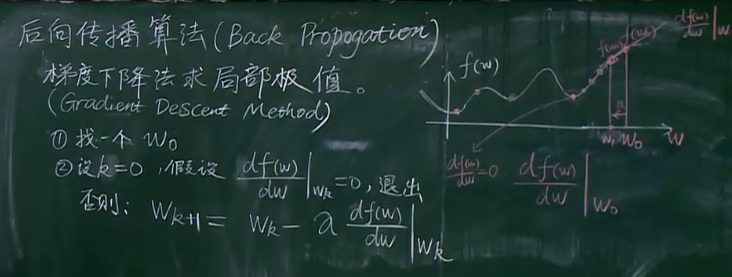 后向传播算法(Back Propogation)
梯度下降法求局部极值。
(Gradient Descent Method)
① 找一个 W₀
② 设k=0,假设 df(w)/dw |W_k =0, 退出
否则: W_{k+1} = W_k - a df(w)/dw |W_k
f(w)
f(w₁) f(w₀)
df(w)/dw |W₀
a
W₁ W₀ W
df(w)/dw =0
df(w)/dw |W₀